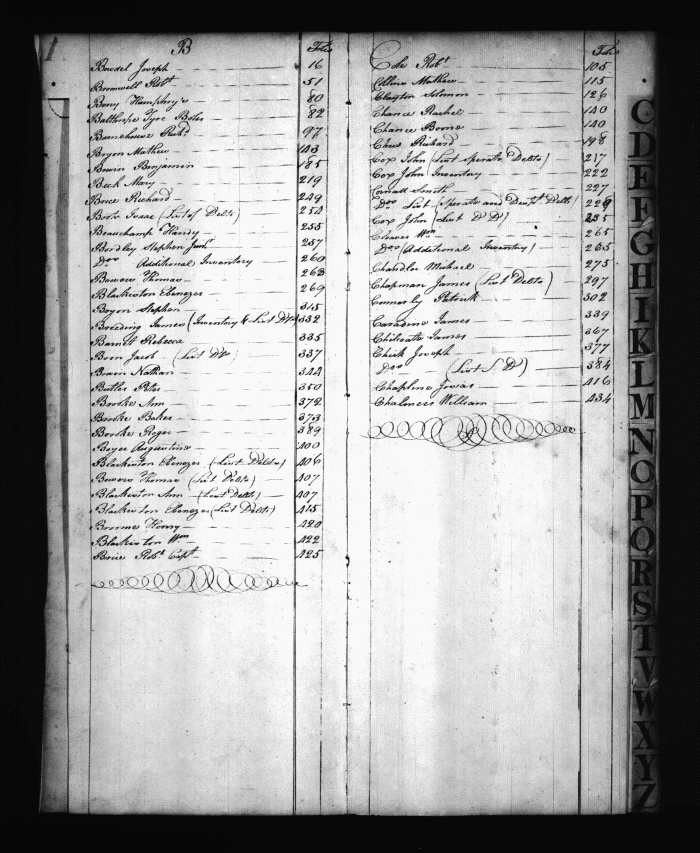 B Folio
Bradel Joseph 16
Bromwell Robt 51
Berry Humphrys 80
Balthrope Tyre Boles 82
Barnehouse Richd 97
Bryon Mathew 143
Beain Benjamin 185
Beck Mary 219
Brice Richard 249
Boots Isaac (List of Debts) 254
Beauchamp Handy 255
Bordley Stephen Junr 257
Do Additional Inventory 260
Bowers Thomas 268
Blackiston Ebenezer 269
Boyer Stephen 315
Breeding James (Inventory & List Dts) 332
Barnit Rebecca 335
Born Jacob (List Dts) 337
Bowen Nathan 344
Butler Peter 350
Brooke Ann 372
Brooke Baker 373
Brooke Roger 389
Boyer Augustine 400
Blackiston Ebenezer (List Debts) 406
Bowers Thomas (List Debts) 407
Blackiston Ann (List Debts) 407
Blackiston Ebenezer (List Debts) 415
Boome Henry 420
Blackiston Wm 422
Brice Robt Capt 425
Folio
Cole Robt 105
Collins Mathew 115
Clayton Solomon 126
Chance Rachel 140
Chance Boone 140
Chew Richard 198
Cox John (List Sperate Debts) 217
Cox John Inventory 222
Smith 227
Do List (Sperate and Despt Debts) 229
Cox John (List D D) 235
Cleaves Wm 265
Do (Additional Inventory) 265
Chandler Michael 275
Chapman James (List Debts) 297
Connerly Patrick 302
Caradine James 339
Chilcoate James 367
Cheek Joseph 377
Do (List S D) 384
Chapline Josias 416
Chalmers William 434
C
D
E
F
G
H
I
K
L
M
N
O
P
Q
R
S
T
V
W
X
Y
Z